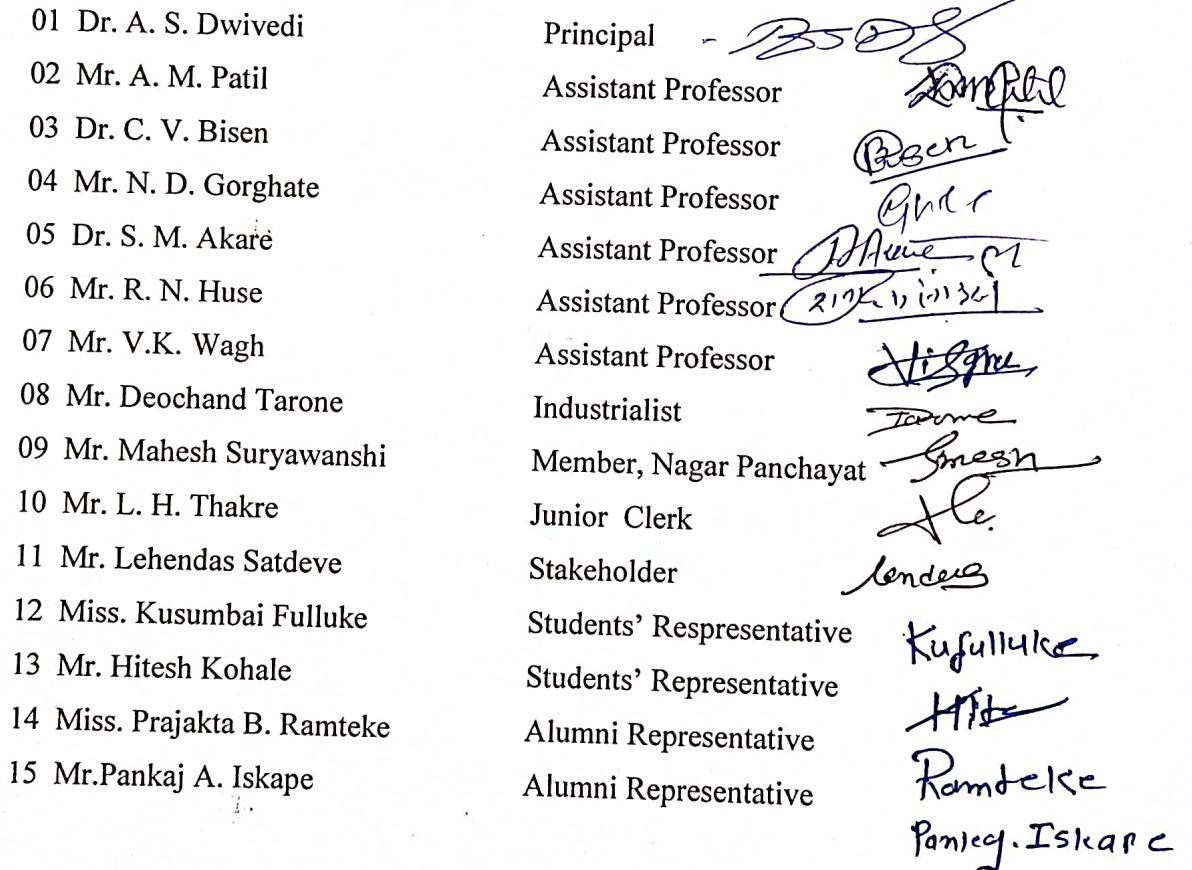 01 Dr. A. S. Dwivedi Principal -
02 Mr. A. M. Patil Assistant Professor
03 Dr. C. V. Bisen Assistant Professor Bisen
04 Mr. N. D. Gorghate Assistant Professor
05 Dr. S. M. Akare Assistant Professor
06 Mr. R. N. Huse Assistant Professor
07 Mr. V.K. Wagh Assistant Professor
08 Mr. Deochand Tarone Industrialist Tarone
09 Mr. Mahesh Suryawanshi Member, Nagar Panchayat
10 Mr. L. H. Thakre Junior Clerk
11 Mr. Lehendas Satdeve Stakeholder
12 Miss. Kusumbai Fulluke Students’ Respresentative Kufulluke
13 Mr. Hitesh Kohale Students’ Representative
14 Miss. Prajakta B. Ramteke Alumni Representative Ramteke
15 Mr.Pankaj A. Iskape Alumni Representative Iskape